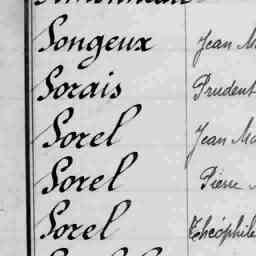 Songeux Jean
Sorais Prudent
Sorel Jean
Sorel Pierre
Sorel Théophile